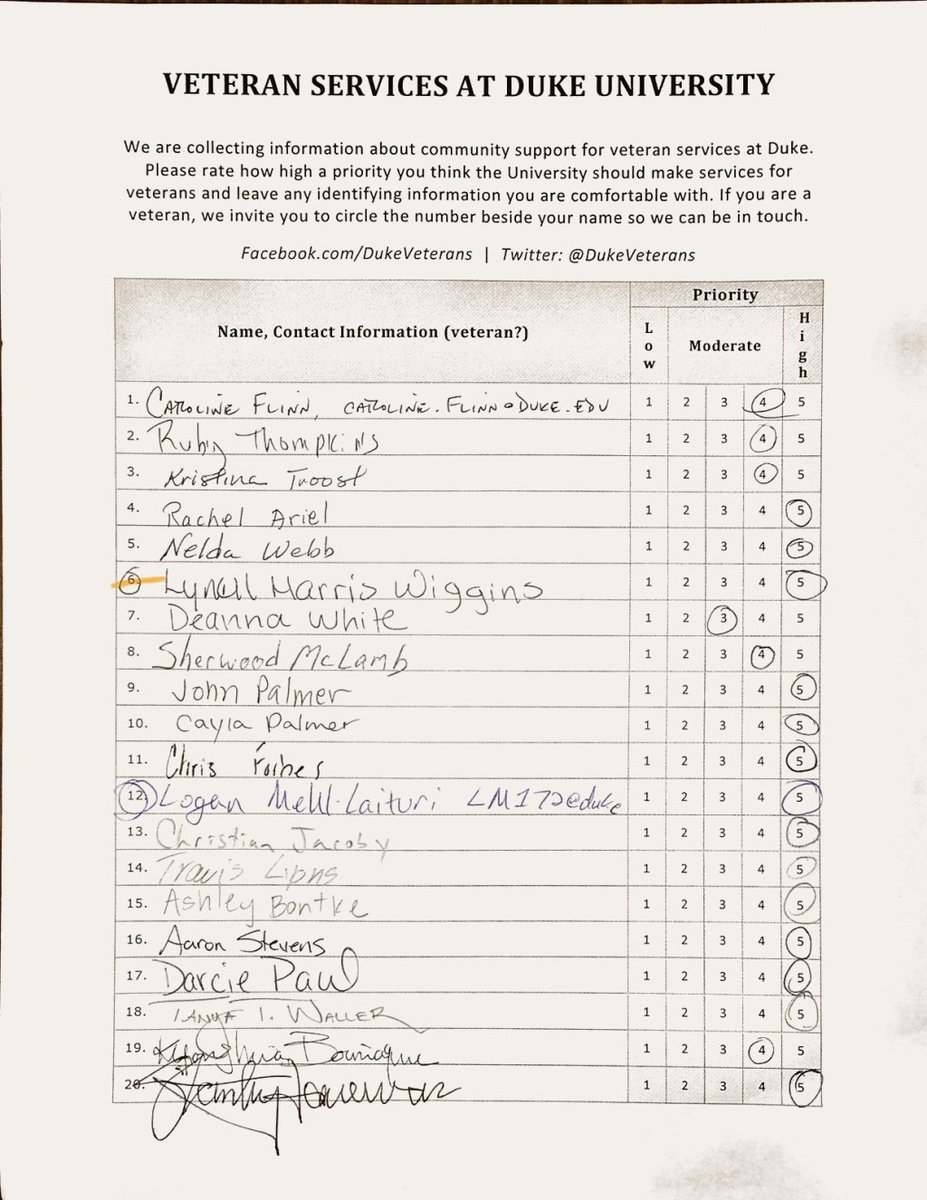 VETERAN SERVICES AT DUKE UNIVERSITY
We are collecting information about community support for veteran services at Duke.
Please rate how high a priority you think the University should make services for
veterans and leave any identifying information you are comfortable with. If you are a
veteran, we invite you to circle the number beside your name so we can be in touch.
Facebook.com/DukeVeterans | Twitter: @DukeVeterans
Priority
Name, Contact Information (veteran?) Low Moderate High
1. CAROLINE FLINN, CAROLINE.FLINN@DUKE.EDU 1 2 3 4 5
2. Ruby Thompkins 1 2 3 4 5
3. Kristina Troost 1 2 3 4 5
4. Rachel Ariel 1 2 3 4 5
5. Nelda Webb 1 2 3 4 5
6. Lynell Harris Wiggins 1 2 3 4 5
7. Deanna White 1 2 3 4 5
8. Sherwood McLamb 1 2 3 4 5
9. John Palmer 1 2 3 4 5
10. Cayla Palmer 1 2 3 4 5
11. Chris Forbes 1 2 3 4 5
12. Logan Mehl-Laituri LM172@duke 1 2 3 4 5
13. Christian Jacoby 1 2 3 4 5
14. Travis Lyons 1 2 3 4 5
15. Ashley Bontke 1 2 3 4 5
16. Aaron Stevens 1 2 3 4 5
17. Darcie Paul 1 2 3 4 5
18. TANYA T. WALLER 1 2 3 4 5
19. 1 2 3 4 5
20. 1 2 3 4 5